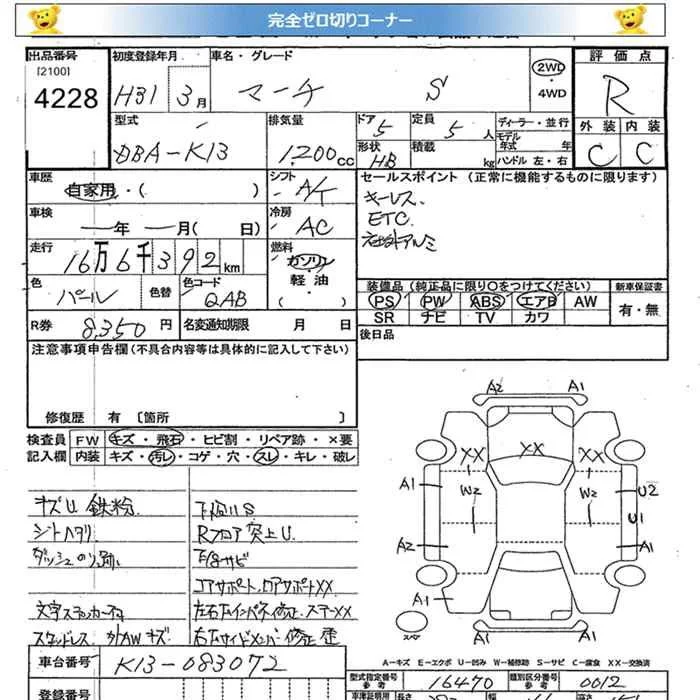 完全ゼロ切りコーナー
出品番号 初度登録年月 車名・グレード 評価点
[2100]
4228 H31 3月 マーチ S 2WD ・4WD R
型式 排気量 ドア 定員 ディーラー・並行 外装 内装
DBA-K13 1,200cc 5 5人 モデル年式 年 C C
形状 HB 積載 kg ハンドル 左・右
車歴 シフト セールスポイント (正常に機能するものに限ります)
自家用・( ) A/T キーレス
車検 冷房 ETC
年 月( 日) AC 社外アルミ
走行 燃料
16万6千392km ガソリン
軽油
・( )
色 色替 色コード 装備品 (純正品に限り○をつけてください) 新車保証書
パール QAB PS PW ABS エアB AW 有・無
SR ナビ TV カワ
R券 8,350円 名変通知期限 月 日 後日品
注意事項申告欄 (不具合内容等は具体的に記入して下さい)
修復歴 有 [箇所 ]
検査員 FW キズ・飛石・ヒビ割・リペア跡・×要
記入欄 内装 キズ・汚レ・コゲ・穴・スレ・キレ・破レ
キズU 鉄粉 下廻りS
シートヘタリ Rフロア突上U
ダッシュのり跡 下廻サビ
コアサポート、ロアサポートXX
文字ステッカー不可 左右Fインパネ修正、ステーXX
スタッドレス 外AWキズ 右Fサイドメンバー修正 歪
A2 A1
XX XX XX
A1 W2 W2 U2
U1
A2 A1
A1 A1
スペア
A-キズ E-エクボ U-凹み W-補修跡 S-サビ C-腐食 XX-交換済
車台番号 K13-083072
登録番号
型式指定番号 参考 16470 類別区分番号 参考 0012